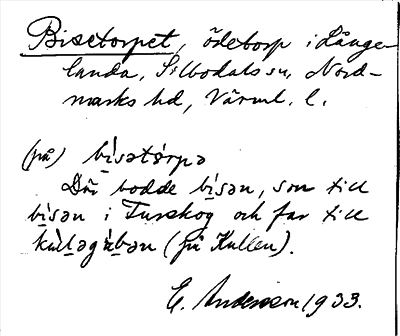 Bisetorpet, ödetorp i Långe-
landa, Silbodals sn, Nord-
marks hd, Värml. l.
(på) bi̱satårpə
Där bodde bi̱sən, son till
bi̱sən i Turskog och far till
kuḻəgùbən (på Kullen).
E. Andersson 1933.